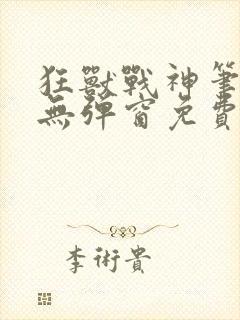 狂獸戰神筆
無彈窗免費
李術貴